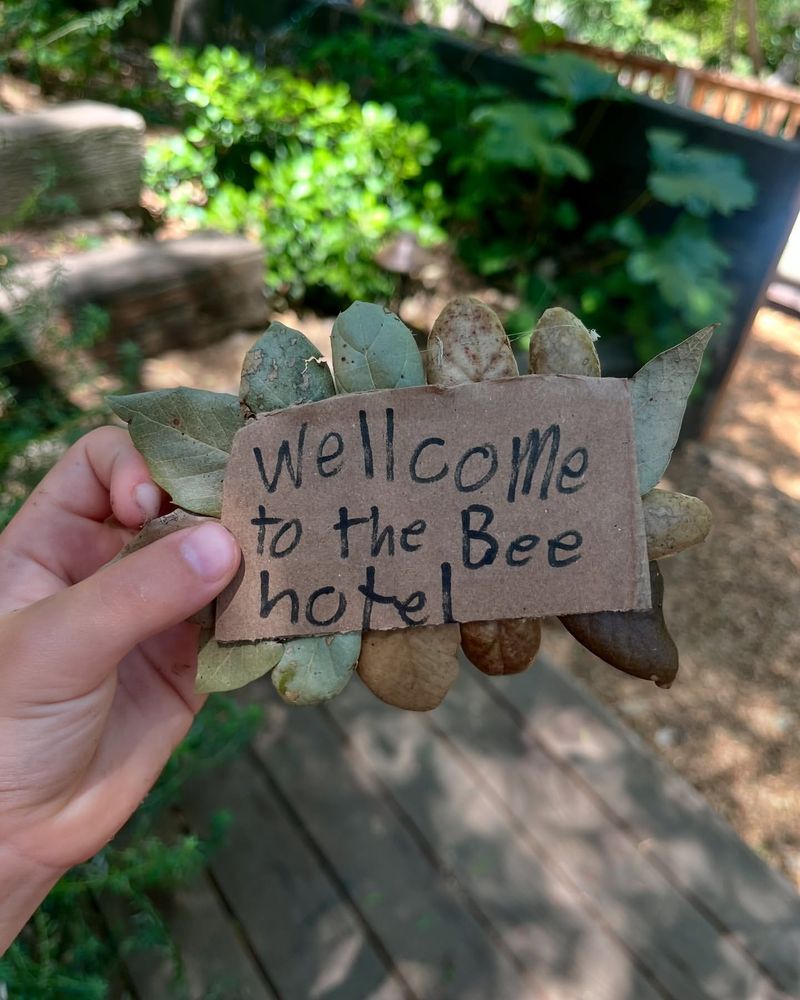 Wellcome
to the Bee
hotel